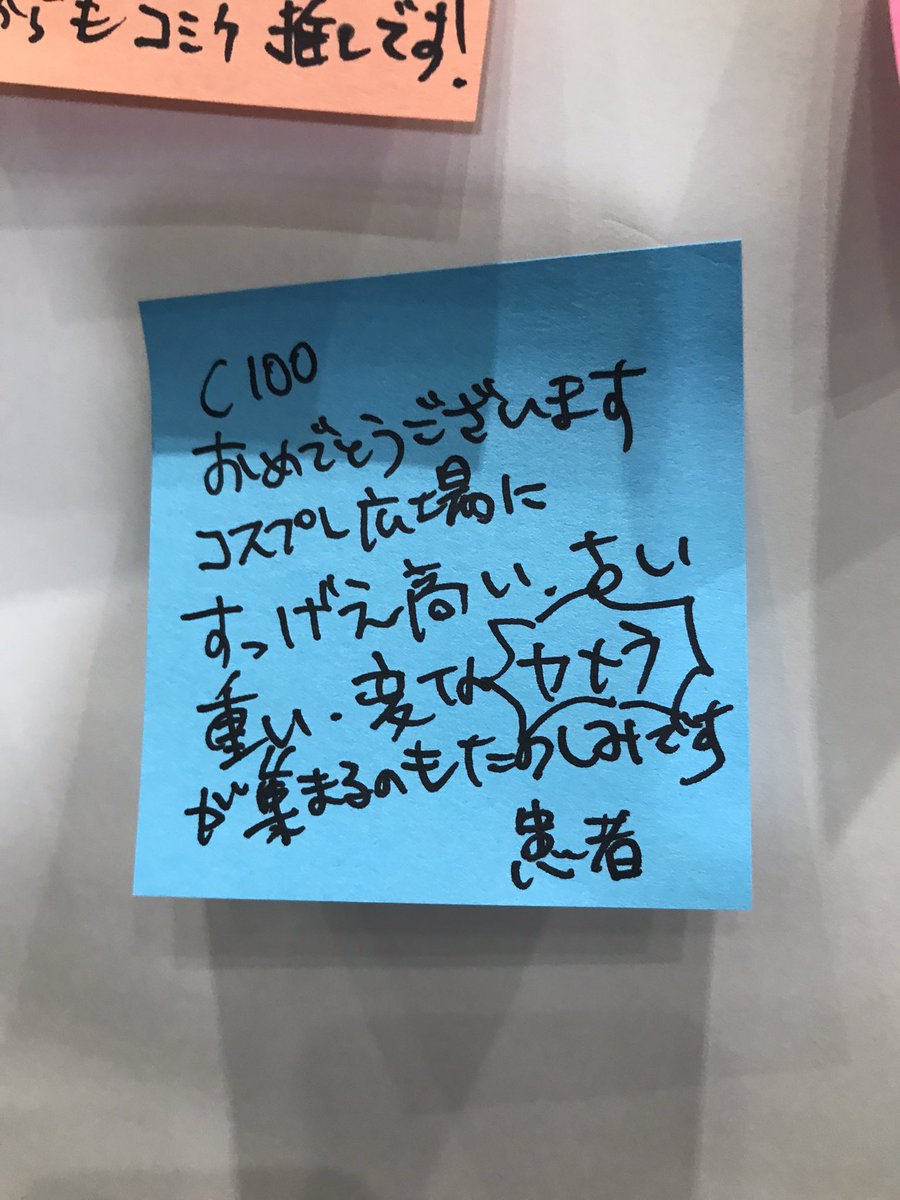 らもコミケ推しです!
C100
おめでとうございます
コスプレ広場に
すっげえ高い・古い
重い・変なカメラ
が集まるのもたのしみです
患者